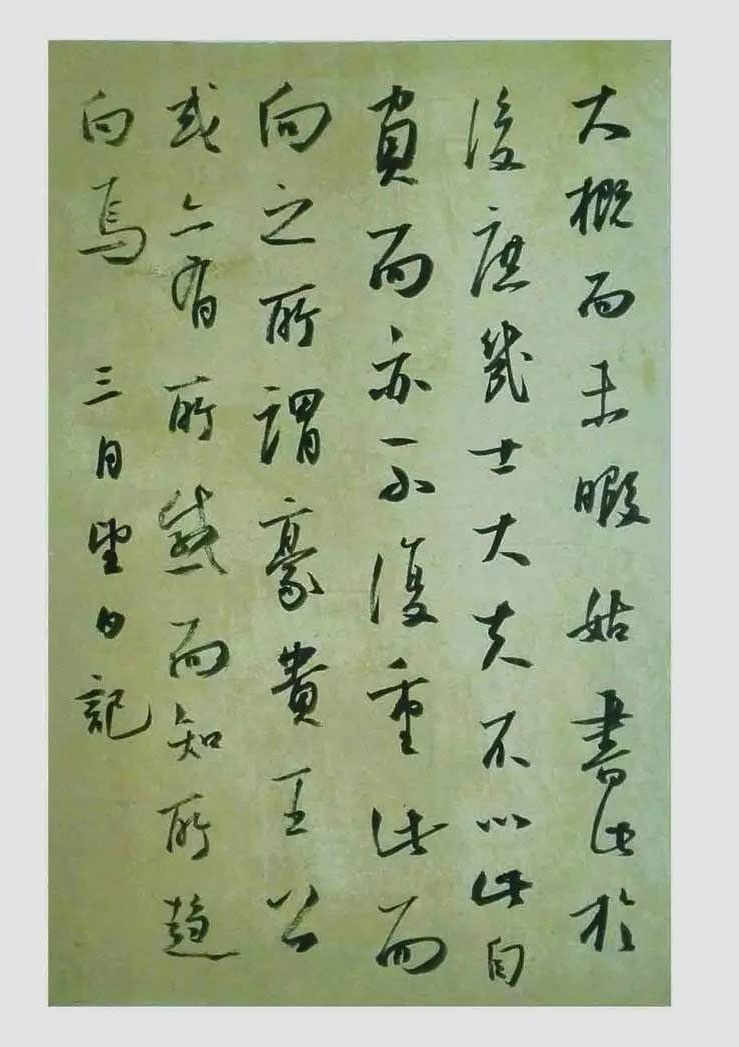 大概而未暇姑書此於
後庶幾士大夫不以此自
賁而亦不復重此而
向之所謂豪貴王公
或亦有所感而知所趨
向焉 三月望日記